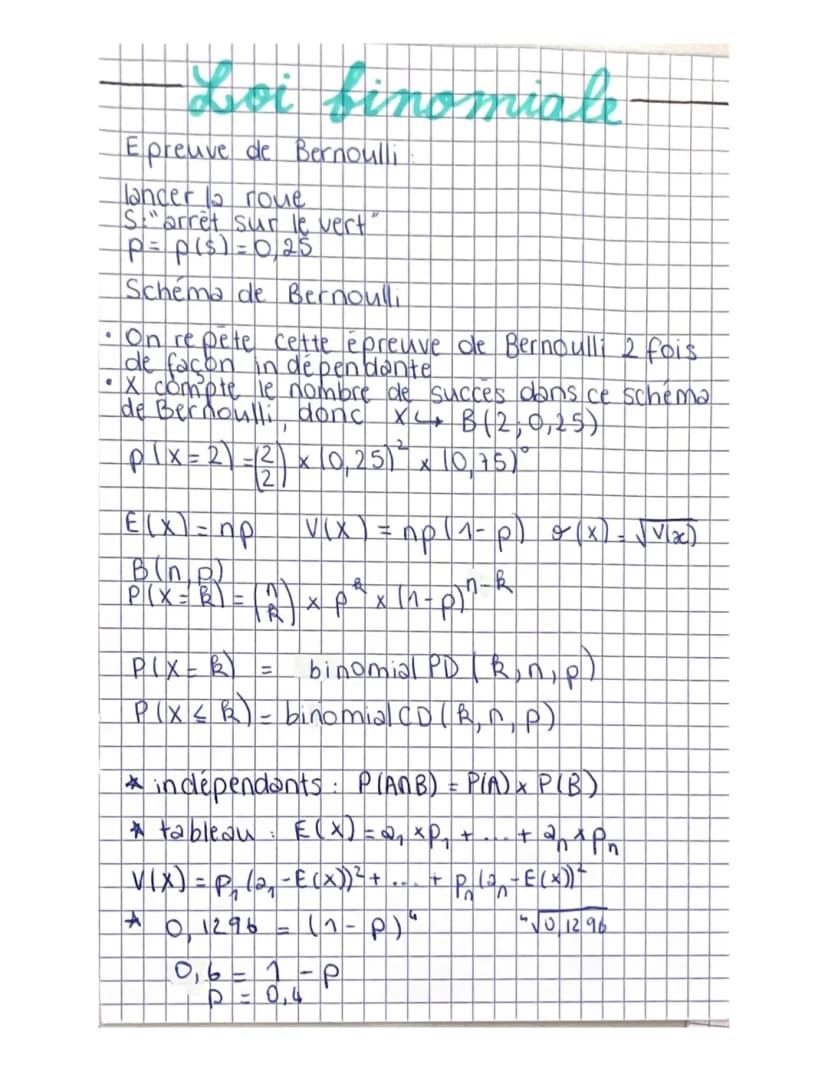 Loi binomiale
Epreuve de Bernoulli :
lancer la roue
S:"arrêt sur le vert"
p= p(S)=0,25
Schéma de Bernoulli
• On repète cette épreuve de Bernoulli 2 fois
de façon indépendante
• X compte le nombre de succès dans ce schéma
de Bernoulli, donc X↪ B(2;0,25)
p(X=2)=(2 2) x (0,25)² x (0,75)⁰
E(X)=np V(X)=np(1-p) σ(x)=√V(x)
B(n,p)
P(X=k)=(n k) x p^k x (1-p)^n-k
P(X=k) = binomial PD (k,n,p)
P(X≤k)= binomial CD (k,n,p)
* indépendants : P(A∩B) = P(A)x P(B)
* tableau : E(X)=a₁ xp₁ + ... + aₙ xpₙ
V(X) = p₁(a₁-E(X))²+ ... + pₙ(aₙ-E(X))²
* 0,1296 = (1-p)⁴ ⁴√0,1296
0,6 = 1-p
p = 0,4